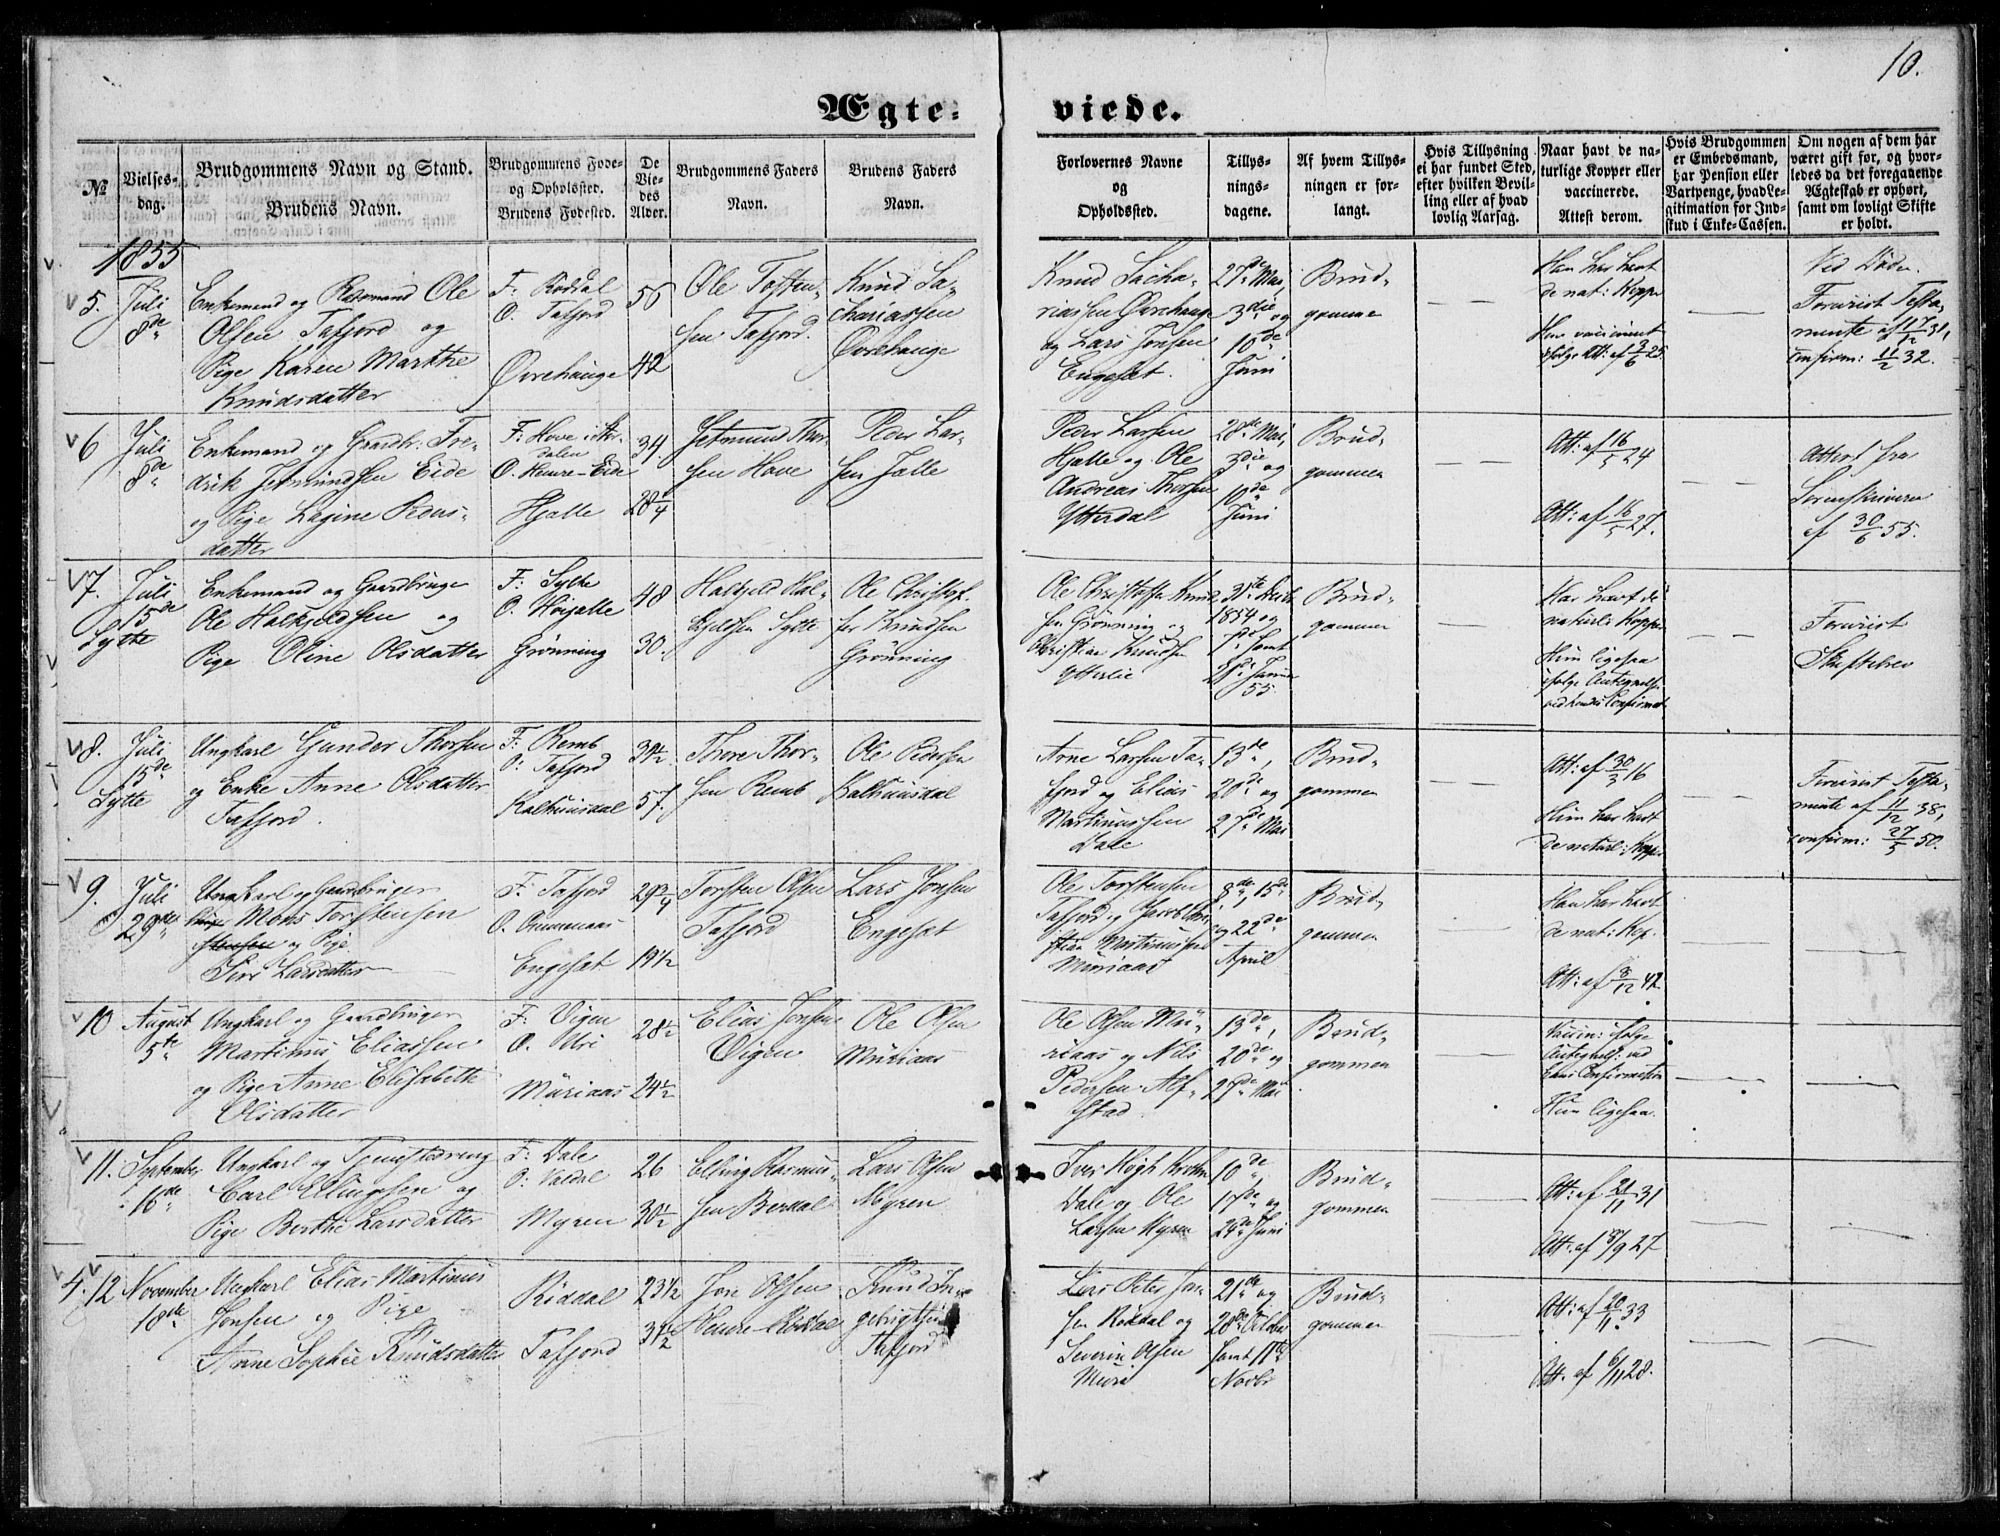 10.
Ægte-
viede.
№
Vielses-
dag.
Brudgommens Navn og Stand.
Brudens Navn.
Brudgommens Føde-
og Opholssted.
Brudens Fødested.
De
Vie-
des
Alder.
Brudgommens Faders
Navn.
Brudens Faders
Navn.
Forlovernes Navne
og
Opholdssted.
Tillys-
nings-
dagene.
Af hvem Tillys-
ningen er for-
langt.
Hvis Tillysning
ei har fundet Sted,
efter hvilken Bevil-
ling eller af hvad
lovlig Aarsag.
Naar havt de na-
turlige Kopper eller
vaccinerede.
Attest derom.
Hvis Brudgommen
er Embedsmand,
har Pension eller
Vartpenge, hvad Le-
gitimation for Ind-
skud i Enke-Cassen.
Om nogen af dem har
været gift før, og hvor-
ledes da det foregaaende
Ægteskab er ophørt,
samt om lovligt Skifte
er holdt.
1855
5.
Juli
8de
Enkemand og Ole
Olsen Tafjord og
Pige Karen Marthe
Knudsdatter
F: Røddal
O. Tafjord
Øvrehauge
56
42
Ole Tosten-
sen Tafjord.
Knud Sa-
chariassen
Øvrehauge
Knud Sacha-
riassen Øvrehauge
og Lars Jonsen
Engeset.
27de Mai,
3die og
10de
Juni
Brud-
gomme
Han har havt
de nat: Koppe
Hun vaccineret
ifølge Att: af 3/6 25
Ved Døden.
Foreviist Testa-
mente af 17/12 31,
confirm: 11/2 32.
6
Juli
8de
Enkemand og Gaardbr. Fre-
drik Jetmundsen Eide
og Pige Lagine Peders-
datter
F: Hove i Nor-
dalen
O. Heure-Eide
Hjalle
34.
28 1/4
Jetmund Thor-
sen Hove
Peder Lar-
sen Jalle
Peder Larsen
Hjalle og Ole
Andreas Thorsen
Ytterdal
28de Mai,
3die og
10de
Juni
Brud-
gommen
Att: af 16/5 24
Att: af 16/5 27.
Attest fra
Sorenskriveren
af 30/6 55.
7.
Juli
15de
Sylte
Enkemand og Gaardbruger
Ole Halkjeldsen og
Pige Oline Olsdatter
F: Sylte
O. Høigalle
Grønning
48
30.
Halkjeld Hal-
kjeldsen Sylte
Ole Christof-
fer Knudsen
Grønning
Ole Christoffer Knud-
sen Grønning og
Christian Knudsen
Ytterlie
31te
1854 og
7de samt
28de
55.
Brud-
gommen
Har havt de
naturl: Kopper
Hun ligesaa
ifølge Antegnelse
ved hendes Confirmat.
Foreviist
Skiftebrev
8.
Juli
15de
Sylte
Ungkarl Gunder Thorsen
og Enke Anne Olsdatter
Tafjord.
F: Remb
O: Tafjord
Kalhuusdal
31 1/2
57.
Thore Thor-
sen Remb
Ole Pedersen
Kalhuusdal
Arne Larsen Ta-
fjord og Elias
Martinussen
Dale
13de,
20de og
27de Mai
Brud-
gommen
Att: af 30/3 16
Hun har havt
de naturl: Kopper
Foreviist Testa-
mente af 11/12 38,
confirm: 27/5 50.
9.
Juli
29de
Ungkarl og Gaardbruger
Mons Torstensen
og Pige
Siri Larsdatter
F: Tafjord
O. Ommenaas
Engeset
29 3/4
19 1/2
Torsten Olsen
Tafjord
Lars Jonsen
Engeset
Ole Torstensen
Tafjord og Jacob Chri-
stian Martinussen
Muriaas
8de, 15de
og 22de
April
Brud-
gommen
Han har havt
de nat: Kop.
Att: af 8/12 42
10
August
5te
Ungkarl og Gaardbruger
Martinus Eliassen
og Pige Anne Elisabeth
Olsdatter
F: Vigen
O. Uri
Muriaas
28 1/2
24 1/2
Elias Jonsen
Vigen
Ole Olsen
Muriaas
Ole Olsen Mu-
riaas og Nils
Pedersen Alf-
stad.
13de,
20de og
27de Mai
Brud-
gommen
Vaccin: ifølge
Antegnels: ved
hans Confirmation
Hun ligesaa.
11.
September
16de
Ungkarl og Tjenestedreng
Carl Ellingsen og
Pige Berthe Larsdatter
F: Dale
O: Valdal
Myren
26
30 1/2
Elling Rasmus-
sen Berdal
Lars Olsen
Myren
Iver Høgh
Dale og Ole
Larsen Myren
10de,
17de og
24de Juni
Brud-
gommen
Att: af 21/11 31
Att: af 8/9 27
4.
12
November
18de
Ungkarl Elias Martinus
Jonsen og Pige
Anne Sophie Knudsdatter
Røddal
Tafjord
23 1/2
31 1/2
Jon Olsen
Heure-Røddal
Knud In-
gebrigtsen
Tafjord
Lars Peter Jon-
sen Røddal og
Severin Olsen
Muri
21de og
28de October
samt 11te
Novbr
Brud-
gommen
Att: af 20/11 33
Att: af 6/11 28.